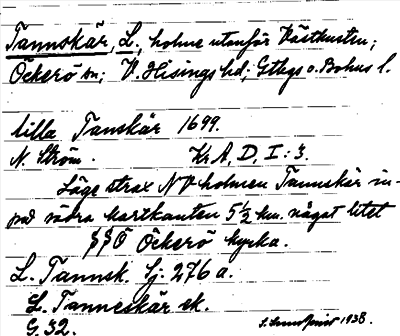 Tannskär, L. holme utanför Västkusten;
Öckerö sn; V. Hisings hd; Gtbgs o. Bohus l.
lilla Tanskär 1699.
N. Ström. Kr A, D, I: 3.
Läge strax NV holmen Tannskär in-
på södra kartkanten 5½ km. något litet
§§Ö Öckerö kyrka.
L. Tannsk. Ej. 276 a.
L. Tanneskär sk.
G. 32. 1938.